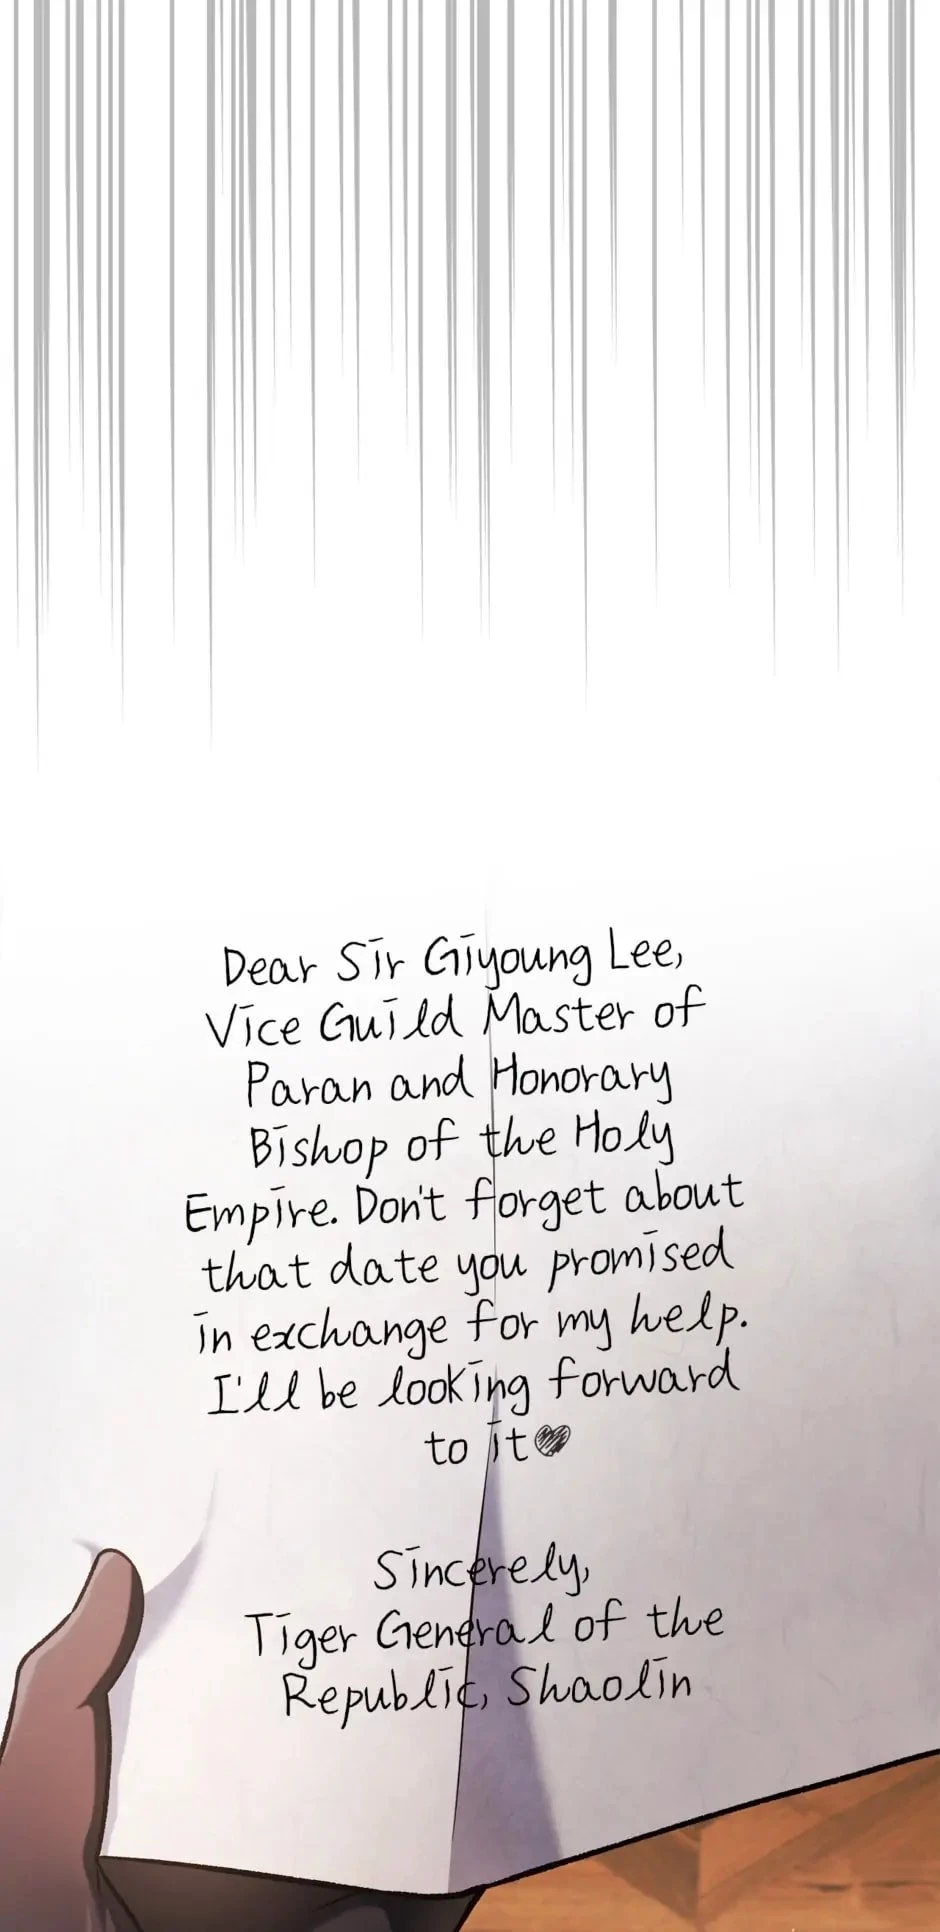 Dear Sir Giyoung Lee,
Vice Guild Master of
Paran and Honorary
Bishop of the Holy
Empire. Don't forget about
that date you promised
in exchange for my help.
I'll be looking forward
to it♥
Sincerely,
Tiger General of the
Republic, Shaolin